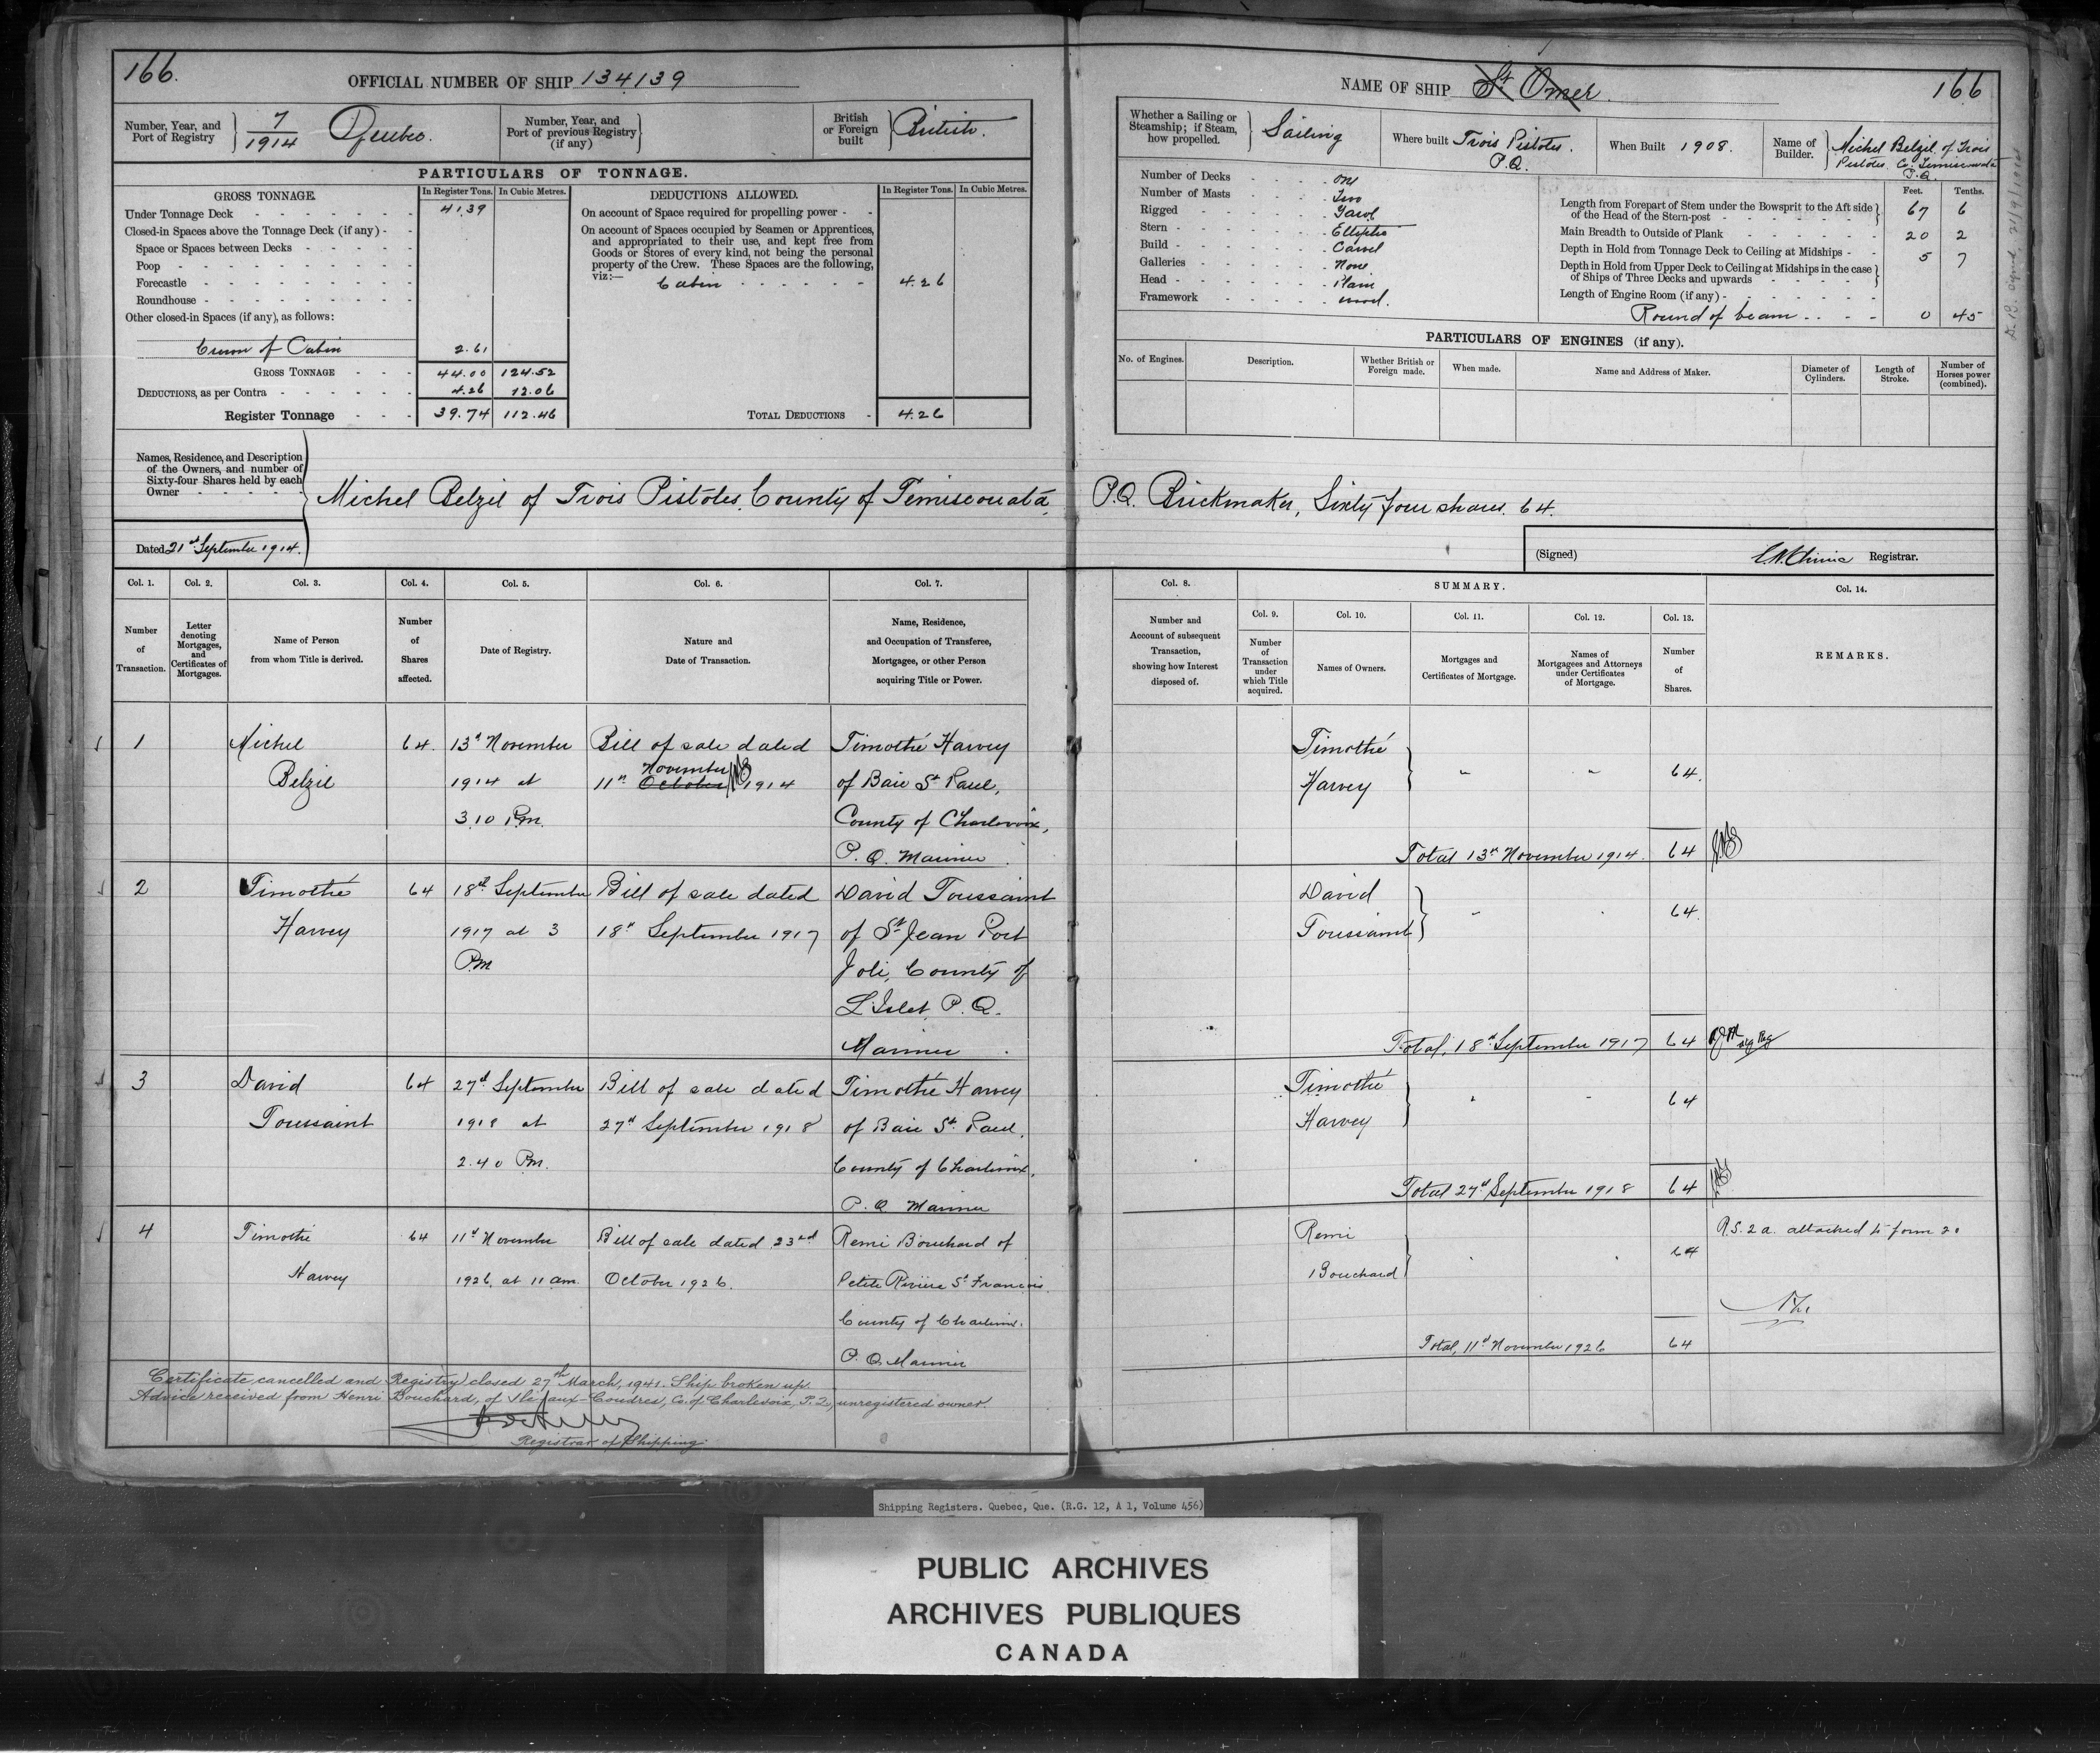 166.
OFFICIAL NUMBER OF SHIP 134139
Number, Year, and Port of Registry
7/1914 Quebec.
Number, Year, and Port of previous Registry (if any)
British or Foreign built
British.
PARTICULARS OF TONNAGE.
GROSS TONNAGE. In Register Tons. In Cubic Metres.
Under Tonnage Deck 41.39
Closed-in Spaces above the Tonnage Deck (if any)
Space or Spaces between Decks
Poop
Forecastle
Roundhouse
Other closed-in Spaces (if any), as follows:
Crown of Cabin 2.61
GROSS TONNAGE 44.00 124.52
DEDUCTIONS, as per Contra 4.26 12.06
Register Tonnage 39.74 112.46
DEDUCTIONS ALLOWED. In Register Tons. In Cubic Metres.
On account of Space required for propelling power
On account of Spaces occupied by Seamen or Apprentices,
and appropriated to their use, and kept free from
Goods or Stores of every kind, not being the personal
property of the Crew. These Spaces are the following,
viz:—
Cabin 4.26
TOTAL DEDUCTIONS 4.26
NAME OF SHIP St Omer.
166
Whether a Sailing or Steamship; if Steam, how propelled.
Sailing
Where built Trois Pistoles. P.Q.
When Built 1908.
Name of Builder.
Michel Belzil of Trois
Pistoles Co. Temiscouata
P.Q.
Number of Decks one
Number of Masts Two
Rigged Yawl
Stern Elliptic
Build Carvel
Galleries None
Head Plain
Framework wood.
Feet. Tenths.
Length from Forepart of Stem under the Bowsprit to the Aft side
of the Head of the Stern-post 67 6
Main Breadth to Outside of Plank 20 2
Depth in Hold from Tonnage Deck to Ceiling at Midships 5 7
Depth in Hold from Upper Deck to Ceiling at Midships in the case
of Ships of Three Decks and upwards
Length of Engine Room (if any)
Round of beam 0 45
PARTICULARS OF ENGINES (if any).
No. of Engines. Description. Whether British or Foreign made. When made. Name and Address of Maker. Diameter of Cylinders. Length of Stroke. Number of Horses power (combined).
Names, Residence, and Description
of the Owners, and number of
Sixty-four Shares held by each
Owner
Michel Belzil of Trois Pistoles, County of Temiscouata, P.Q. Brickmaker, Sixty four shares. 64.
Dated 21st September 1914.
(Signed) Registrar.
Col. 1. Col. 2. Col. 3. Col. 4. Col. 5. Col. 6. Col. 7.
Number of Transaction.
Letter denoting Mortgages, and Certificates of Mortgages.
Name of Person from whom Title is derived.
Number of Shares affected.
Date of Registry.
Nature and Date of Transaction.
Name, Residence, and Occupation of Transferee, Mortgagee, or other Person acquiring Title or Power.
Col. 8. SUMMARY. Col. 14.
Col. 9. Col. 10. Col. 11. Col. 12. Col. 13.
Number and Account of subsequent Transaction, showing how Interest disposed of.
Number of Transaction under which Title acquired.
Names of Owners.
Mortgages and Certificates of Mortgage.
Names of Mortgagees and Attorneys under Certificates of Mortgage.
Number of Shares.
REMARKS.
1 Michel 64. 13th November Bill of sale dated Timothé Harvey
Belzil 1914 at 11th October November 1914 of Baie St Paul,
3.10 P.m. County of Charlevoix,
P. Q. Mariner
Timothé
Harvey 64.
Total 13th November 1914. 64
2 Timothé 64 18th September Bill of sale dated David Toussaint
Harvey 1917 at 3 18th September 1917 of St Jean Port
P.m Joli, County of
L'Islet, P. Q.
Mariner
David
Toussaint 64.
Total, 18th September 1917 64
3 David 64 27th September Bill of sale dated Timothé Harvey
Toussaint 1918 at 27th September 1918 of Baie St. Paul,
2.40 P.m. County of Charlevoix,
P. Q. Mariner
Timothé
Harvey 64
Total 27th September 1918 64
4 Timothé 64 11th November Bill of sale dated 23rd Remi Bouchard of
Harvey 1926, at 11 am. October 1926. Petite Riviere St Francois
County of Charlevoix.
P. Q. Mariner
Remi
Bouchard 64
R.S. 2 a. attached to form 20
Total, 11th November 1926 64
Certificate cancelled and Registry closed 27th March, 1941. Ship broken up.
Advice received from Henri Bouchard, of Ile-aux-Coudres, Co. of Charlevoix, P.Q., unregistered owner.
Registrar of Shipping.
Shipping Registers. Quebec, Que. (R.G. 12, A 1, Volume 456)
PUBLIC ARCHIVES
ARCHIVES PUBLIQUES
CANADA